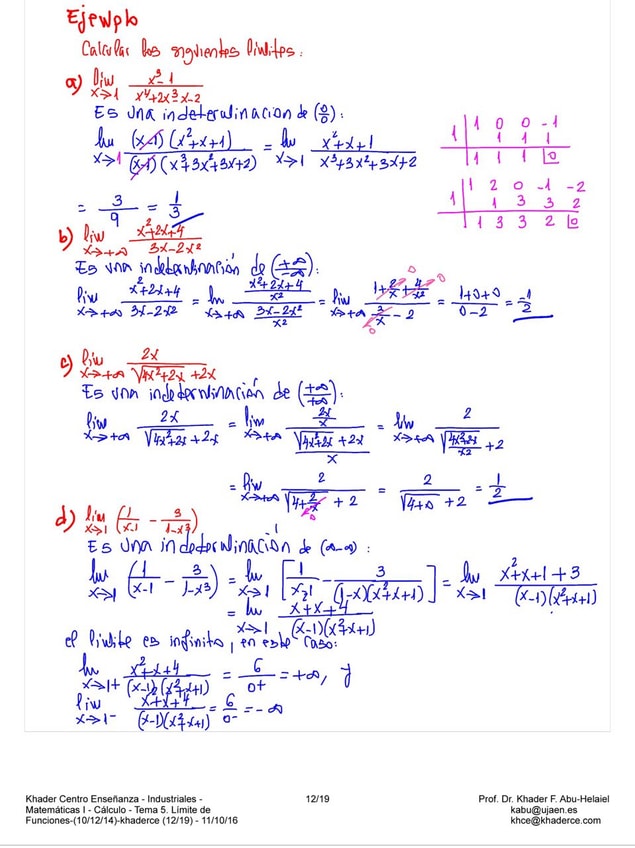 Ejemplo
Calcular los siguientes límites:
a) lim x→1 (x³-1)/(x⁴+2x³-x-2)
Es una indeterminacion de (0/0):
lim x→1 ((x-1)(x²+x+1))/((x-1)(x³+3x²+3x+2)) = lim x→1 (x²+x+1)/(x³+3x²+3x+2)
1 0 0 -1
1 1 1 1
1 1 1 0
= 3/9 = 1/3
1 2 0 -1 -2
1 1 3 3 2
1 3 3 2 0
b) lim x→+∞ (x²+2x+4)/(3x-2x²)
Es una indeterminación de (+∞/-∞):
lim x→+∞ (x²+2x+4)/(3x-2x²) = lim x→+∞ ((x²+2x+4)/x²)/((3x-2x²)/x²) = lim x→+∞ (1+2/x+4/x²)/(3/x-2) = (1+0+0)/(0-2) = -1/2
c) lim x→+∞ 2x/(√(4x²+2x)+2x)
Es una indeterminación de (+∞/+∞):
lim x→+∞ 2x/(√(4x²+2x)+2x) = lim x→+∞ (2x/x)/((√(4x²+2x)+2x)/x) = lim x→+∞ 2/(√((4x²+2x)/x²)+2)
= lim x→+∞ 2/(√(4+2/x)+2) = 2/(√(4+0)+2) = 1/2
d) lim x→1 (1/(x-1) - 3/(1-x³))
Es una indeterminación de (∞-∞):
lim x→1 (1/(x-1) - 3/(1-x³)) = lim x→1 [1/(x-1) - 3/((1-x)(x²+x+1))] = lim x→1 (x²+x+1+3)/((x-1)(x²+x+1))
= lim x→1 (x²+x+4)/((x-1)(x²+x+1))
el límite es infinito, en este caso:
lim x→1+ (x²+x+4)/((x-1)(x²+x+1)) = 6/0+ = +∞, y
lim x→1- (x²+x+4)/((x-1)(x²+x+1)) = 6/0- = -∞
Khader Centro Enseñanza - Industriales -
Matemáticas I - Cálculo - Tema 5. Límite de
Funciones-(10/12/14)-khaderce (12/19) - 11/10/16
12/19
Prof. Dr. Khader F. Abu-Helaiel
kabu@ujaen.es
khce@khaderce.com